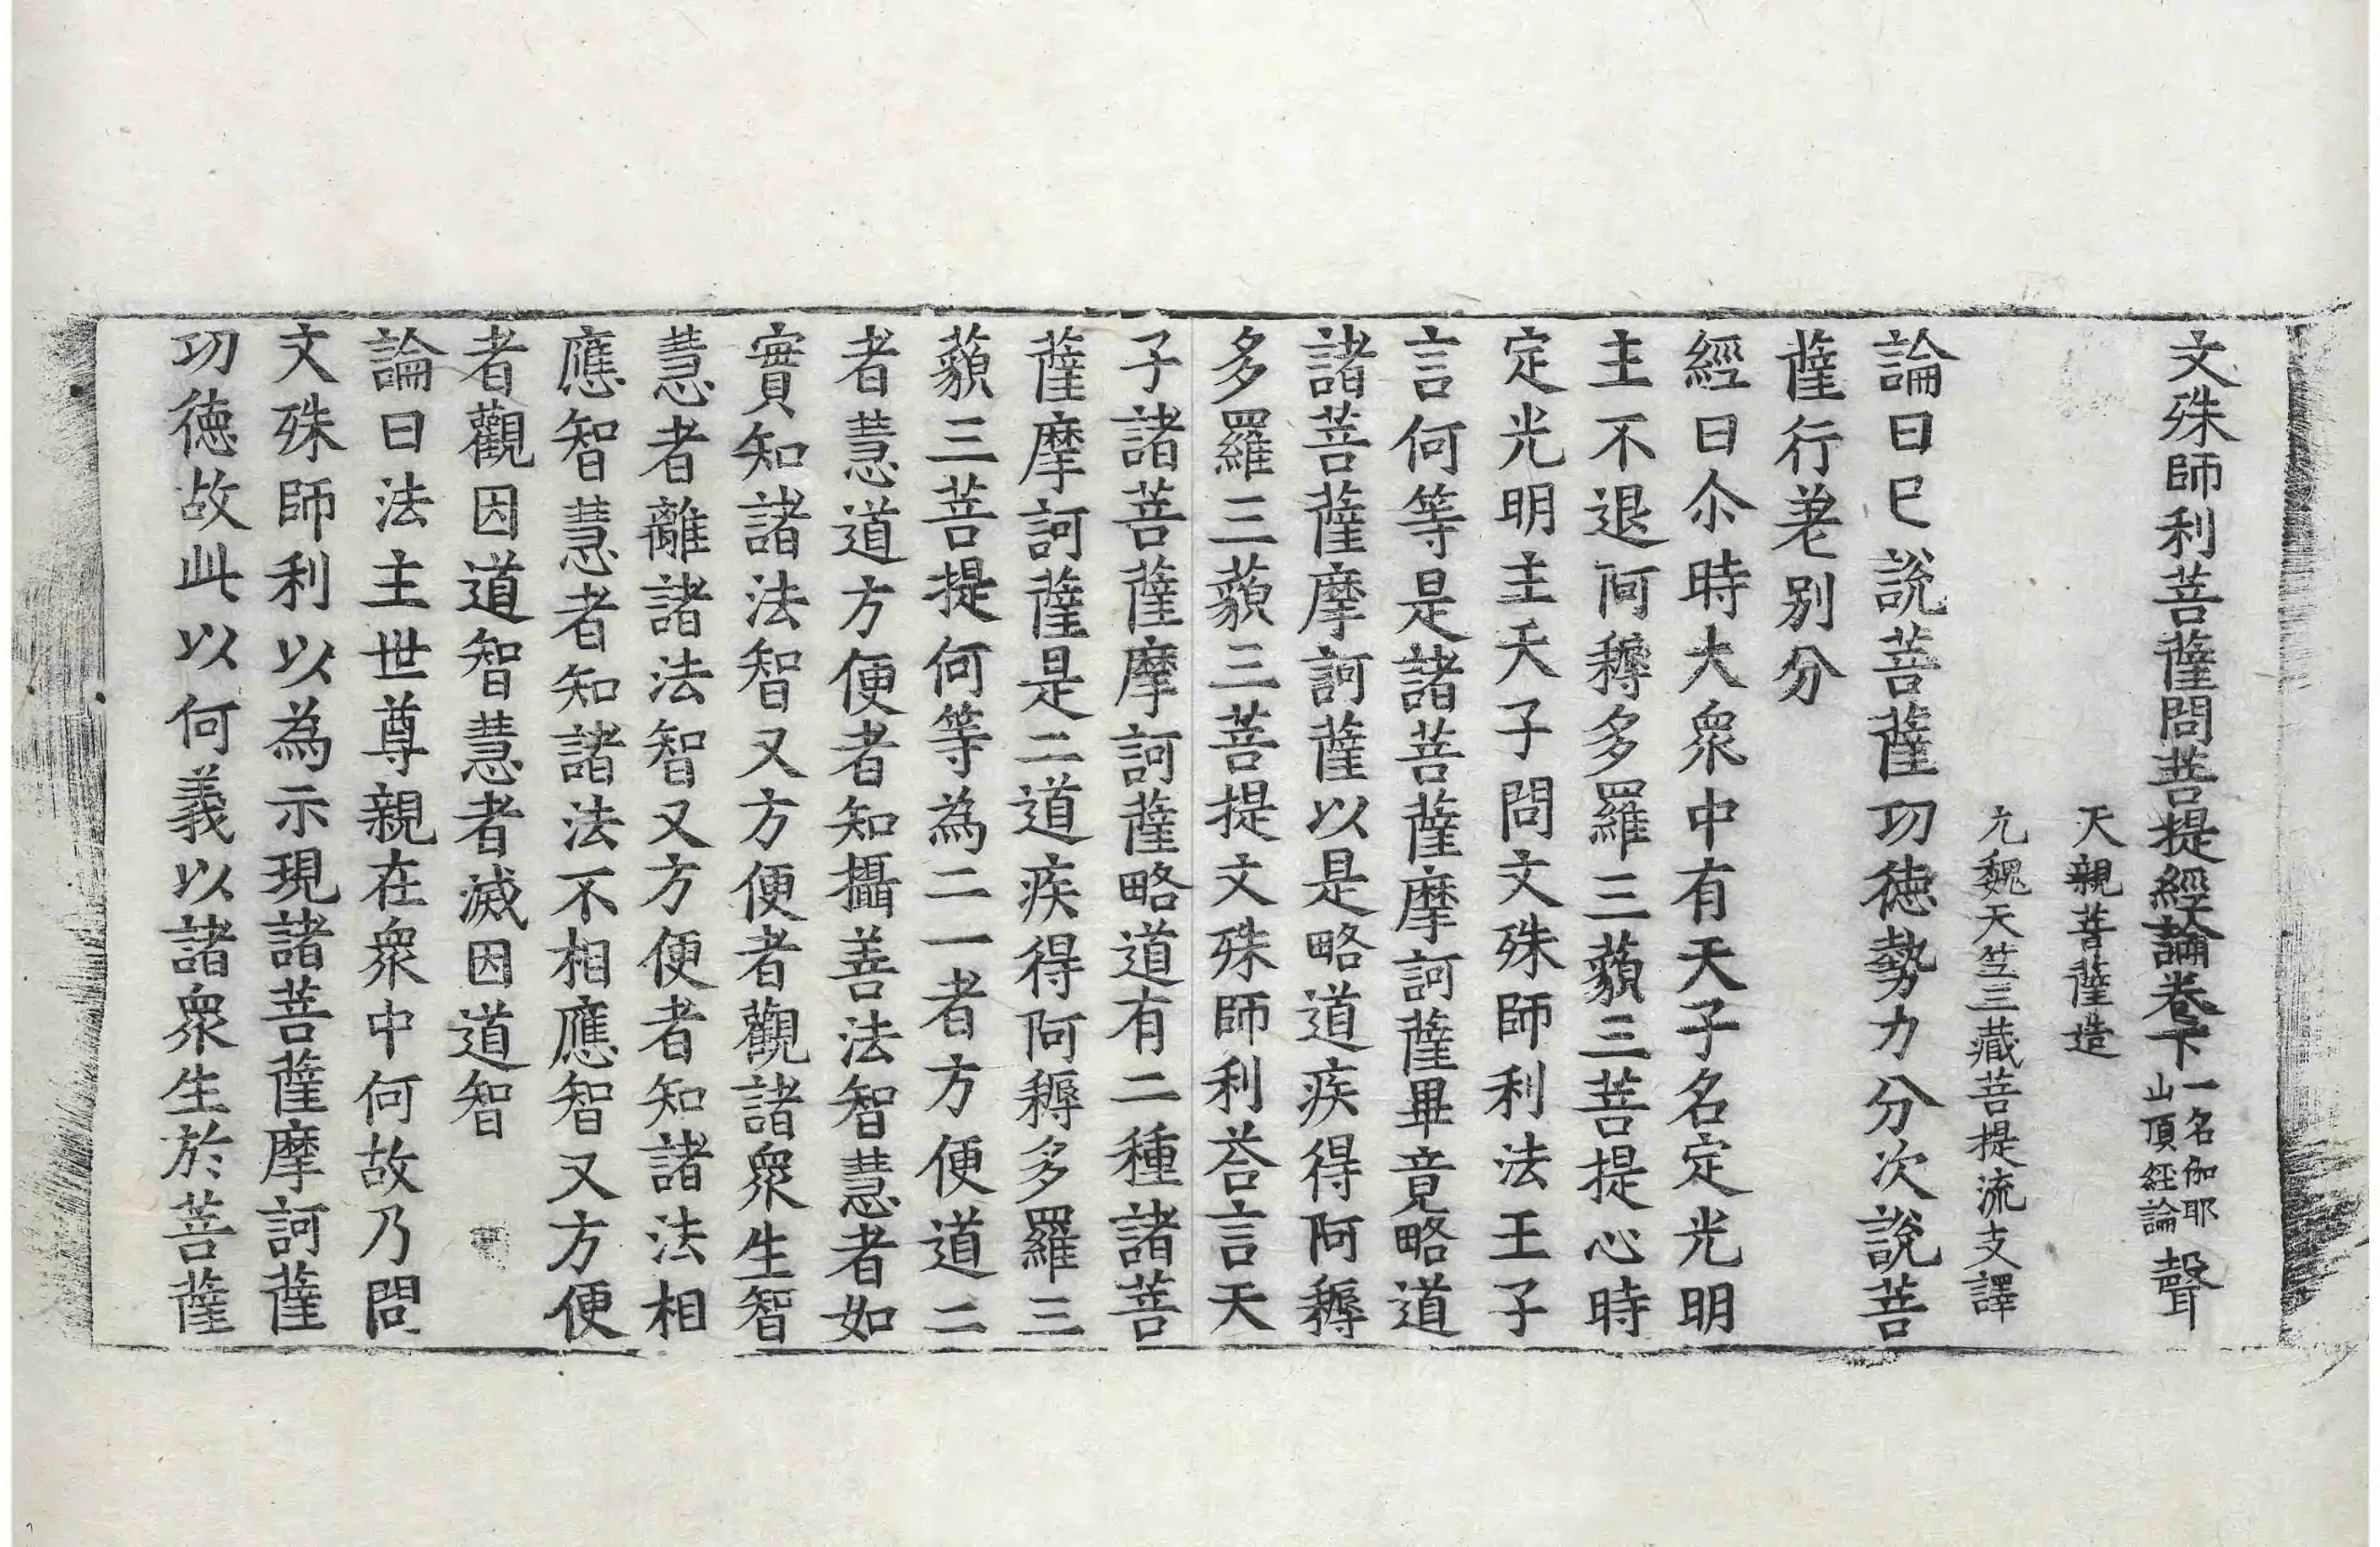 文殊師利菩薩問菩提經論卷下一名伽耶山頂經論 聲
天親菩薩造
元魏天竺三藏菩提流支譯
論曰已說菩薩功德勢力分次說菩
薩行差別分
經曰尒時大衆中有天子名定光明
主不退阿耨多羅三藐三菩提心時
定光明主天子問文殊師利法王子
言何等是諸菩薩摩訶薩畢竟略道
諸菩薩摩訶薩以是略道疾得阿耨
多羅三藐三菩提文殊師利荅言天
子諸菩薩摩訶薩略道有二種諸菩
薩摩訶薩是二道疾得阿耨多羅三
藐三菩提何等為二一者方便道二
者慧道方便者知攝善法智慧者如
實知諸法智又方便者觀諸衆生智
慧者離諸法智又方便者知諸法相
應智慧者知諸法不相應智又方便
者觀因道智慧者滅因道智
論曰法主世尊親在衆中何故乃問
文殊師利以為示現諸菩薩摩訶薩
功德故此以何義以諸衆生於菩薩